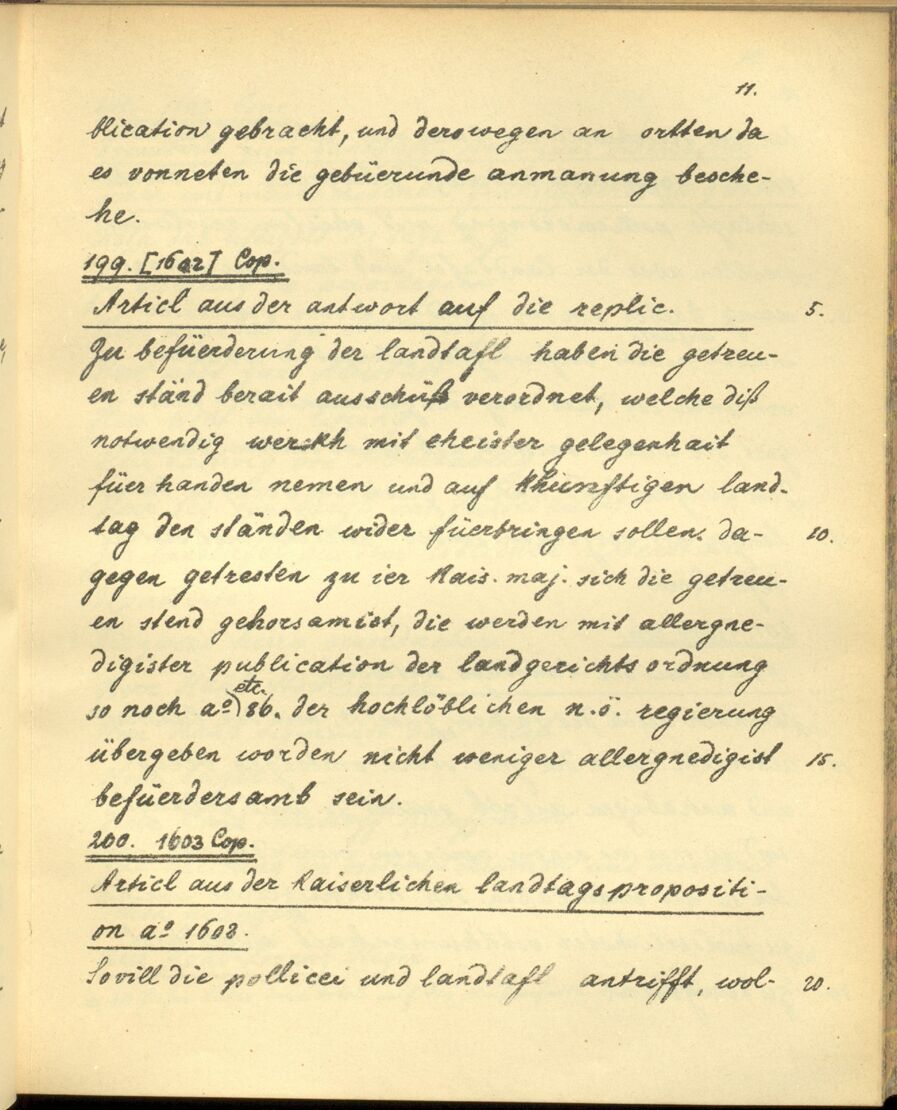 11.
blication gebracht, und derowegen an ortten da
es vonneten die gebüerunde anmanung besche-
he.
199. [1602] Cop.
Articl aus der antwort auf die replic. 5.
Zu befüerderung der landtafl haben die getreu-
en ständ berait ausschüß verordnet, welche diß
notwendig werckh mit eheister gelegenhait
füer handen nemen und auf khünftigen land-
tag den ständen wider füerbringen sollen. da- 10.
gegen getresten zu ier kais. maj. sich die getreu-
en stend gehorsamist, die werden mit allergne-
digister publication der landgerichtsordnung
so noch aº) etc. 86. der hochlöblichen n.ö. regierung
übergeben worden nicht weniger allergnedigist 15.
befüerdersamb sein.
200. 1603 Cop.
Articl aus der kaiserlichen landtagspropositi-
on aº 1603.
Sovill die pollicei und landtafl antrifft, wol- 20.